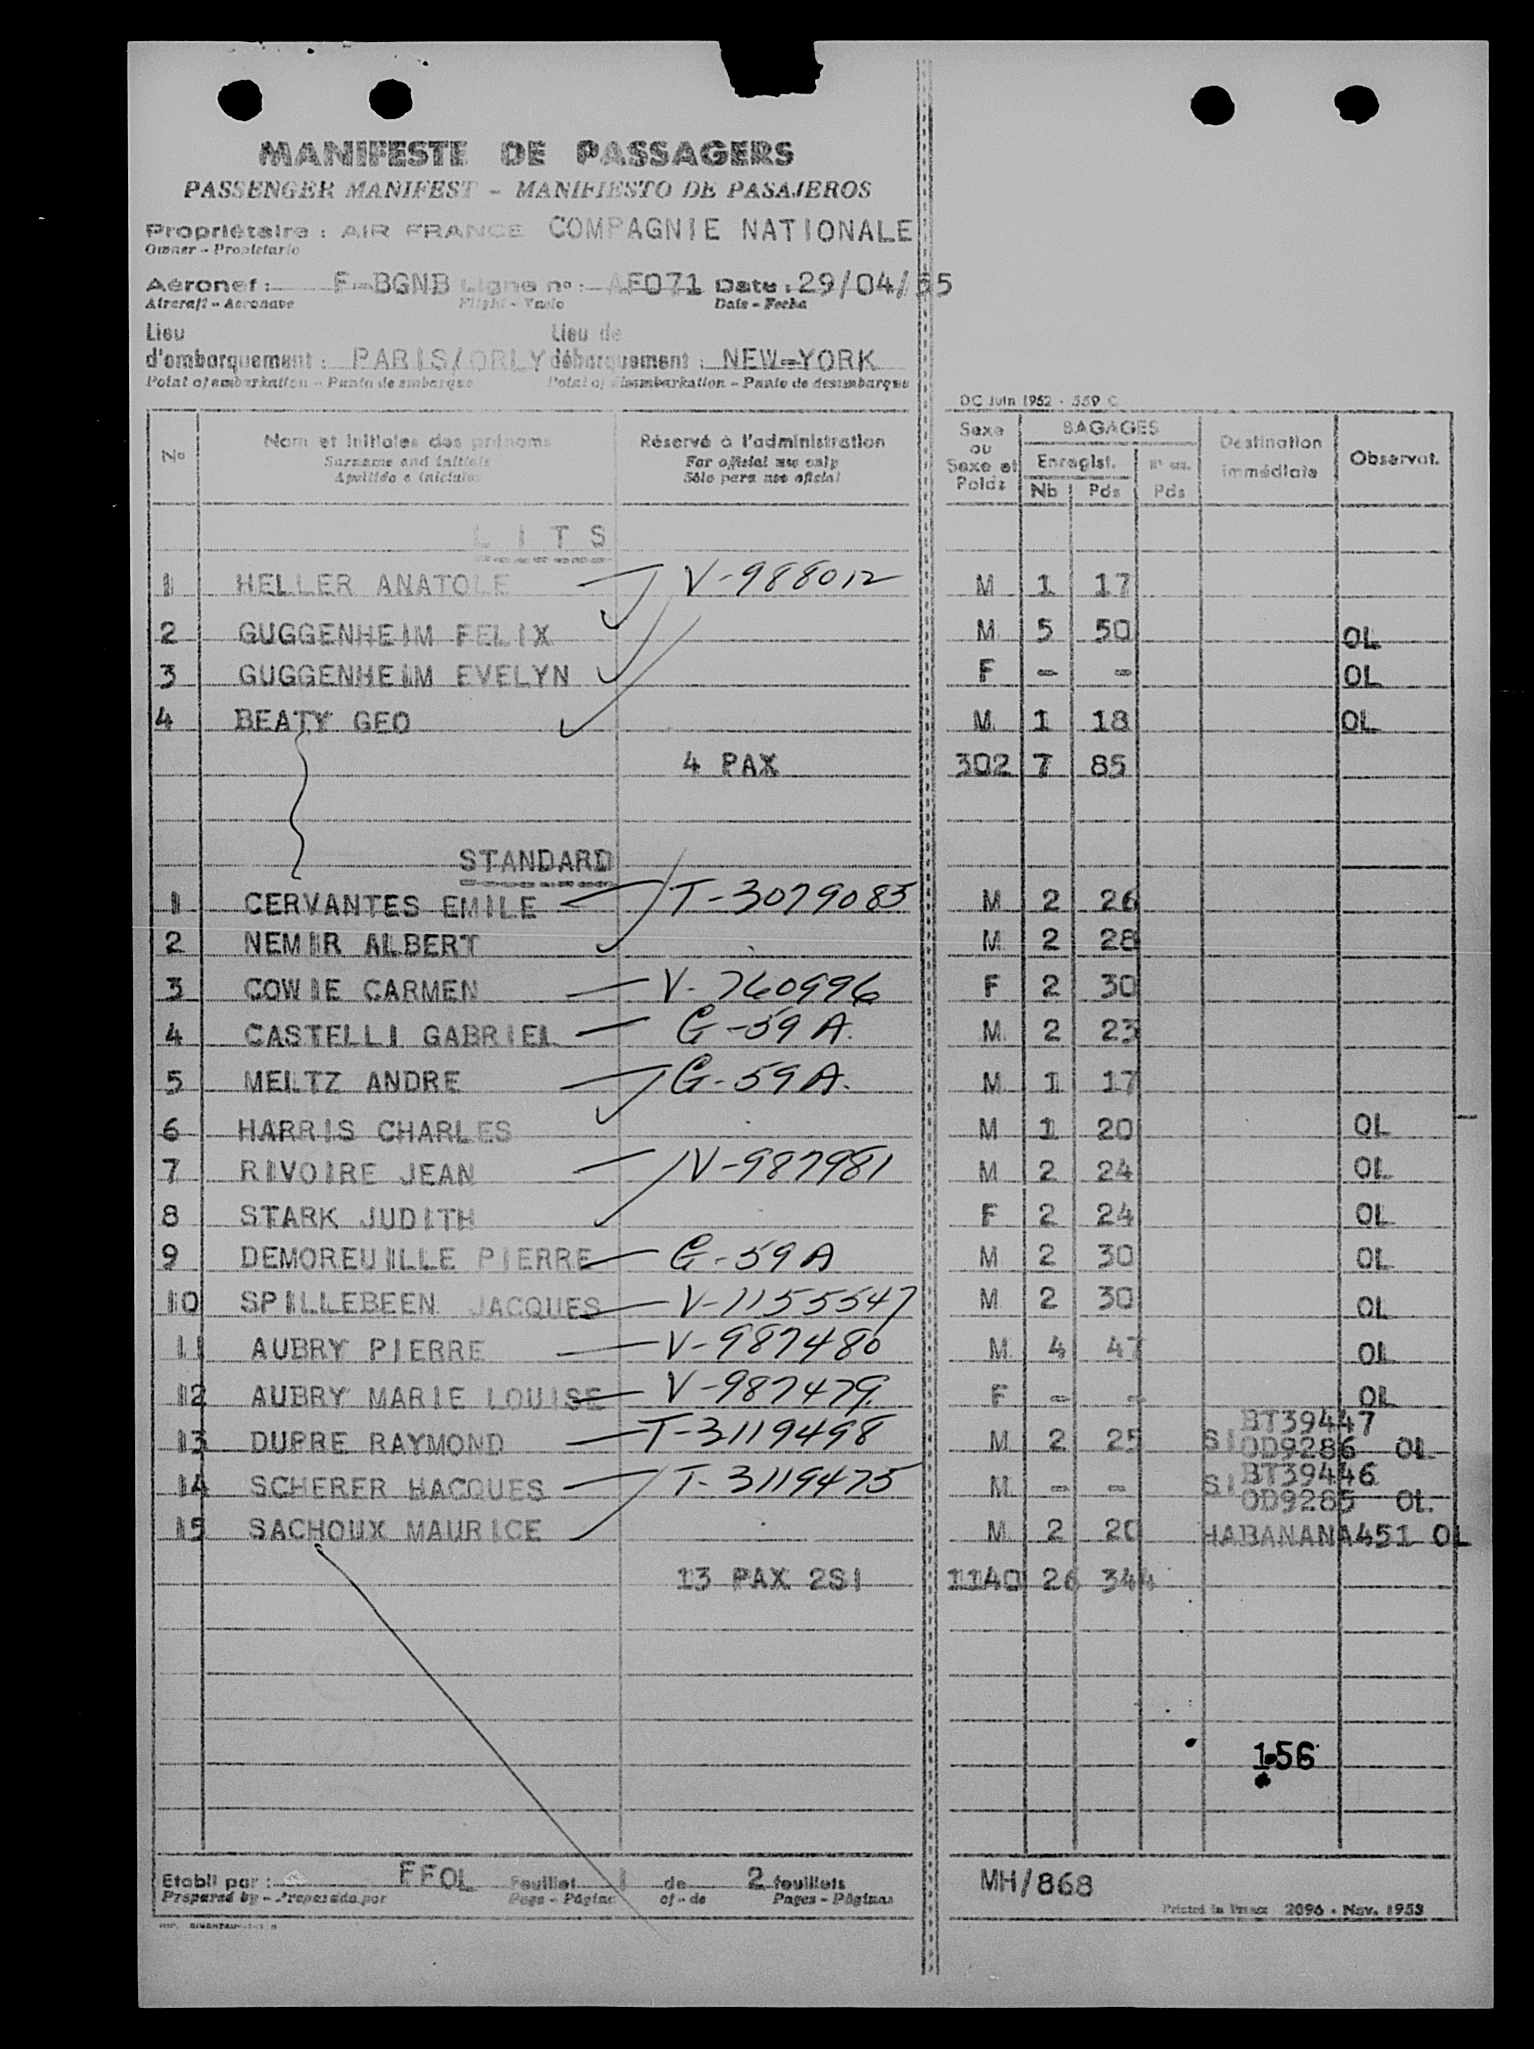 MANIFESTE DE PASSAGERS
PASSENGER MANIFEST - MANIFIESTO DE PASAJEROS
Propriétaire : AIR FRANCE COMPAGNIE NATIONALE
Owner - Propietario
Aéronef : F-BGNB Ligne nº : AF071 Date : 29/04/55
Aircraft - Aeronave Flight - Vuelo Date - Fecha
Lieu d'embarquement : PARIS/ORLY Lieu de débarquement : NEW-YORK
Point of embarkation - Punto de embarque Point of disembarkation - Punto de desembarque
DC Juin 1952 - 559 C
Nº Nom et initiales des prénoms Réservé à l'administration Sexe ou Sexe et Poids BAGAGES Destination immédiate Observat.
Surname and initials For official use only Enregist.
Apellido e iniciales Sólo para uso oficial Nb Pds Pds
LITS
1 HELLER ANATOLE V-988012 M 1 17
2 GUGGENHEIM FELIX M 5 50 OL
3 GUGGENHEIM EVELYN F - - OL
4 BEATY GEO M 1 18 OL
4 PAX 302 7 85
STANDARD
1 CERVANTES EMILE T-3079085 M 2 26
2 NEMIR ALBERT M 2 28
3 COWIE CARMEN V-760996 F 2 30
4 CASTELLI GABRIEL G-59A. M 2 23
5 MELTZ ANDRE G-59A. M 1 17
6 HARRIS CHARLES M 1 20 OL
7 RIVOIRE JEAN V-987981 M 2 24 OL
8 STARK JUDITH F 2 24 OL
9 DEMOREUILLE PIERRE G-59A M 2 30 OL
10 SPILLEBEEN JACQUES V-1155547 M 2 30 OL
11 AUBRY PIERRE V-987480 M 4 47 OL
12 AUBRY MARIE LOUISE V-987479. F - - OL
13 DUPRE RAYMOND T-3119498 M 2 25 SI BT39447 OD9286 OL
14 SCHERER HACQUES T-3119475 M - - SI BT39446 OD9285 OL
15 SACHOUX MAURICE M 2 20 HABANANA451 OL
13 PAX 2SI 1140 26 344
156
Etabli par : FFOL Feuillet 1 de 2 feuillets MH/868
Prepared by - Preparado por Page - Página of - de Pages - Páginas
Printed in France 2096 - Nov. 1953